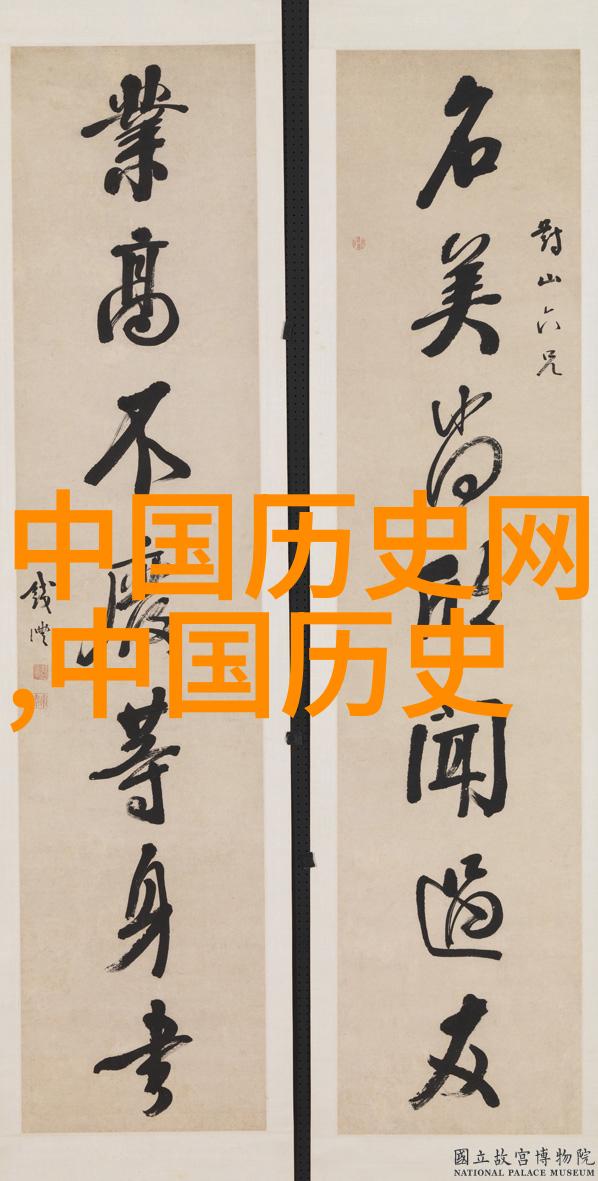 對山六兄
名美尚欣聞過友
業高不廢等身書
錢灃
中国历史网
,中国历史
國立故宮博物院
NATIONAL PALACE MUSEUM